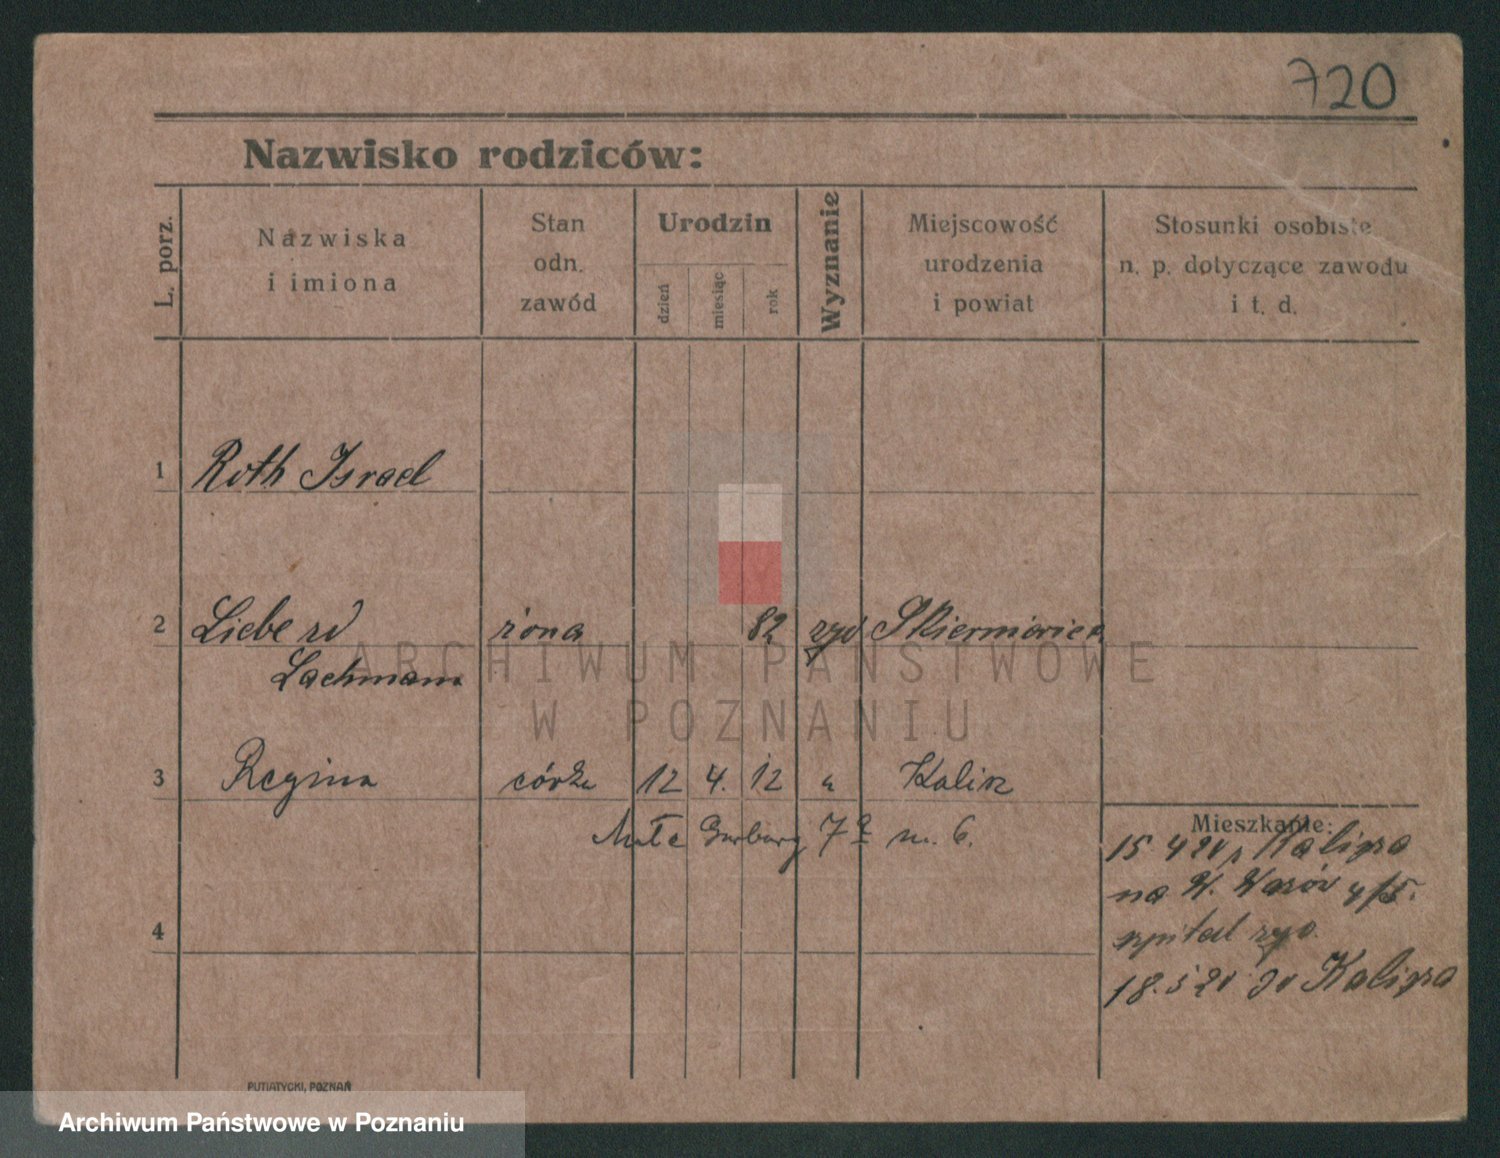 720
Nazwisko rodziców:
L. porz.
Nazwiska
i imiona
Stan
odn.
zawód
Urodzin
dzień
miesiąc
rok
Wyznanie
Miejscowość
urodzenia
i powiat
Stosunki osobiste
n. p. dotyczące zawodu
i t. d.
1 Roth Israel
2 Liebe zd żona 82 żyd Skierniewice
Lachmann
ARCHIWUM PAŃSTWOWE
W POZNANIU
3 Regina córka 12 4. 12 " Kalisz
Małe Garbary 7a m. 6.
Mieszkanie:
15 4 20 z Kalisza
na W.
4
szpital żyd.
18.5 20 do Kalisza
PUTIATYCKI, POZNAŃ
Archiwum Państwowe w Poznaniu